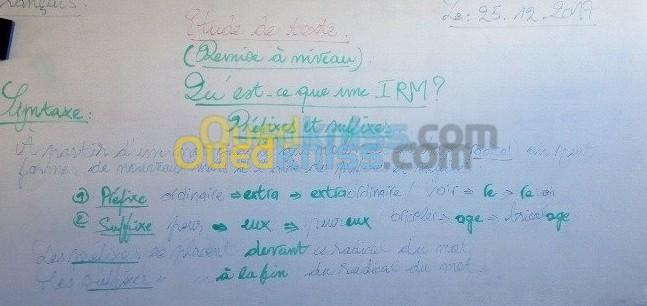 Français: Le: 25.12.2019
Etude de texte.
(Remise à niveau)
Qu'est-ce que une IRM?
Syntaxe:
Préfixes et suffixes
Ouedkniss.com
Ouedkniss.com
À partir d'un radical on peut
former de nouveaux mots à
① Préfixe ordinaire ⇒ extra ⇒ extraordinaire / voir ⇒ re ⇒
② Suffixe peur ⇒ eux ⇒ peureux / bricoler ⇒ age ⇒ bricolage
Les préfixes se placent devant le radical du mot
Les suffixes à la fin du radical du mot.